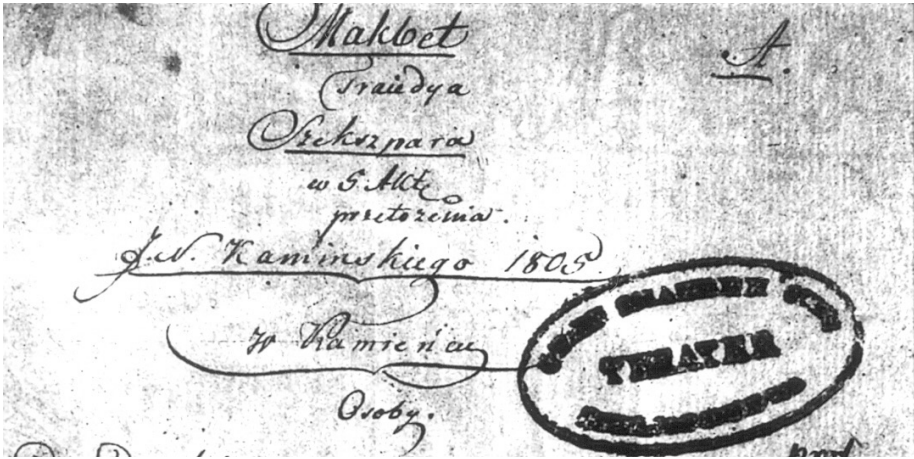 Makbet
A.
Traiedya
Szekszpara
w 5 Akt
przełożenia.
J. N. Kaminskiego 1805.
w Kamieńcu
THEATER
Osoby.